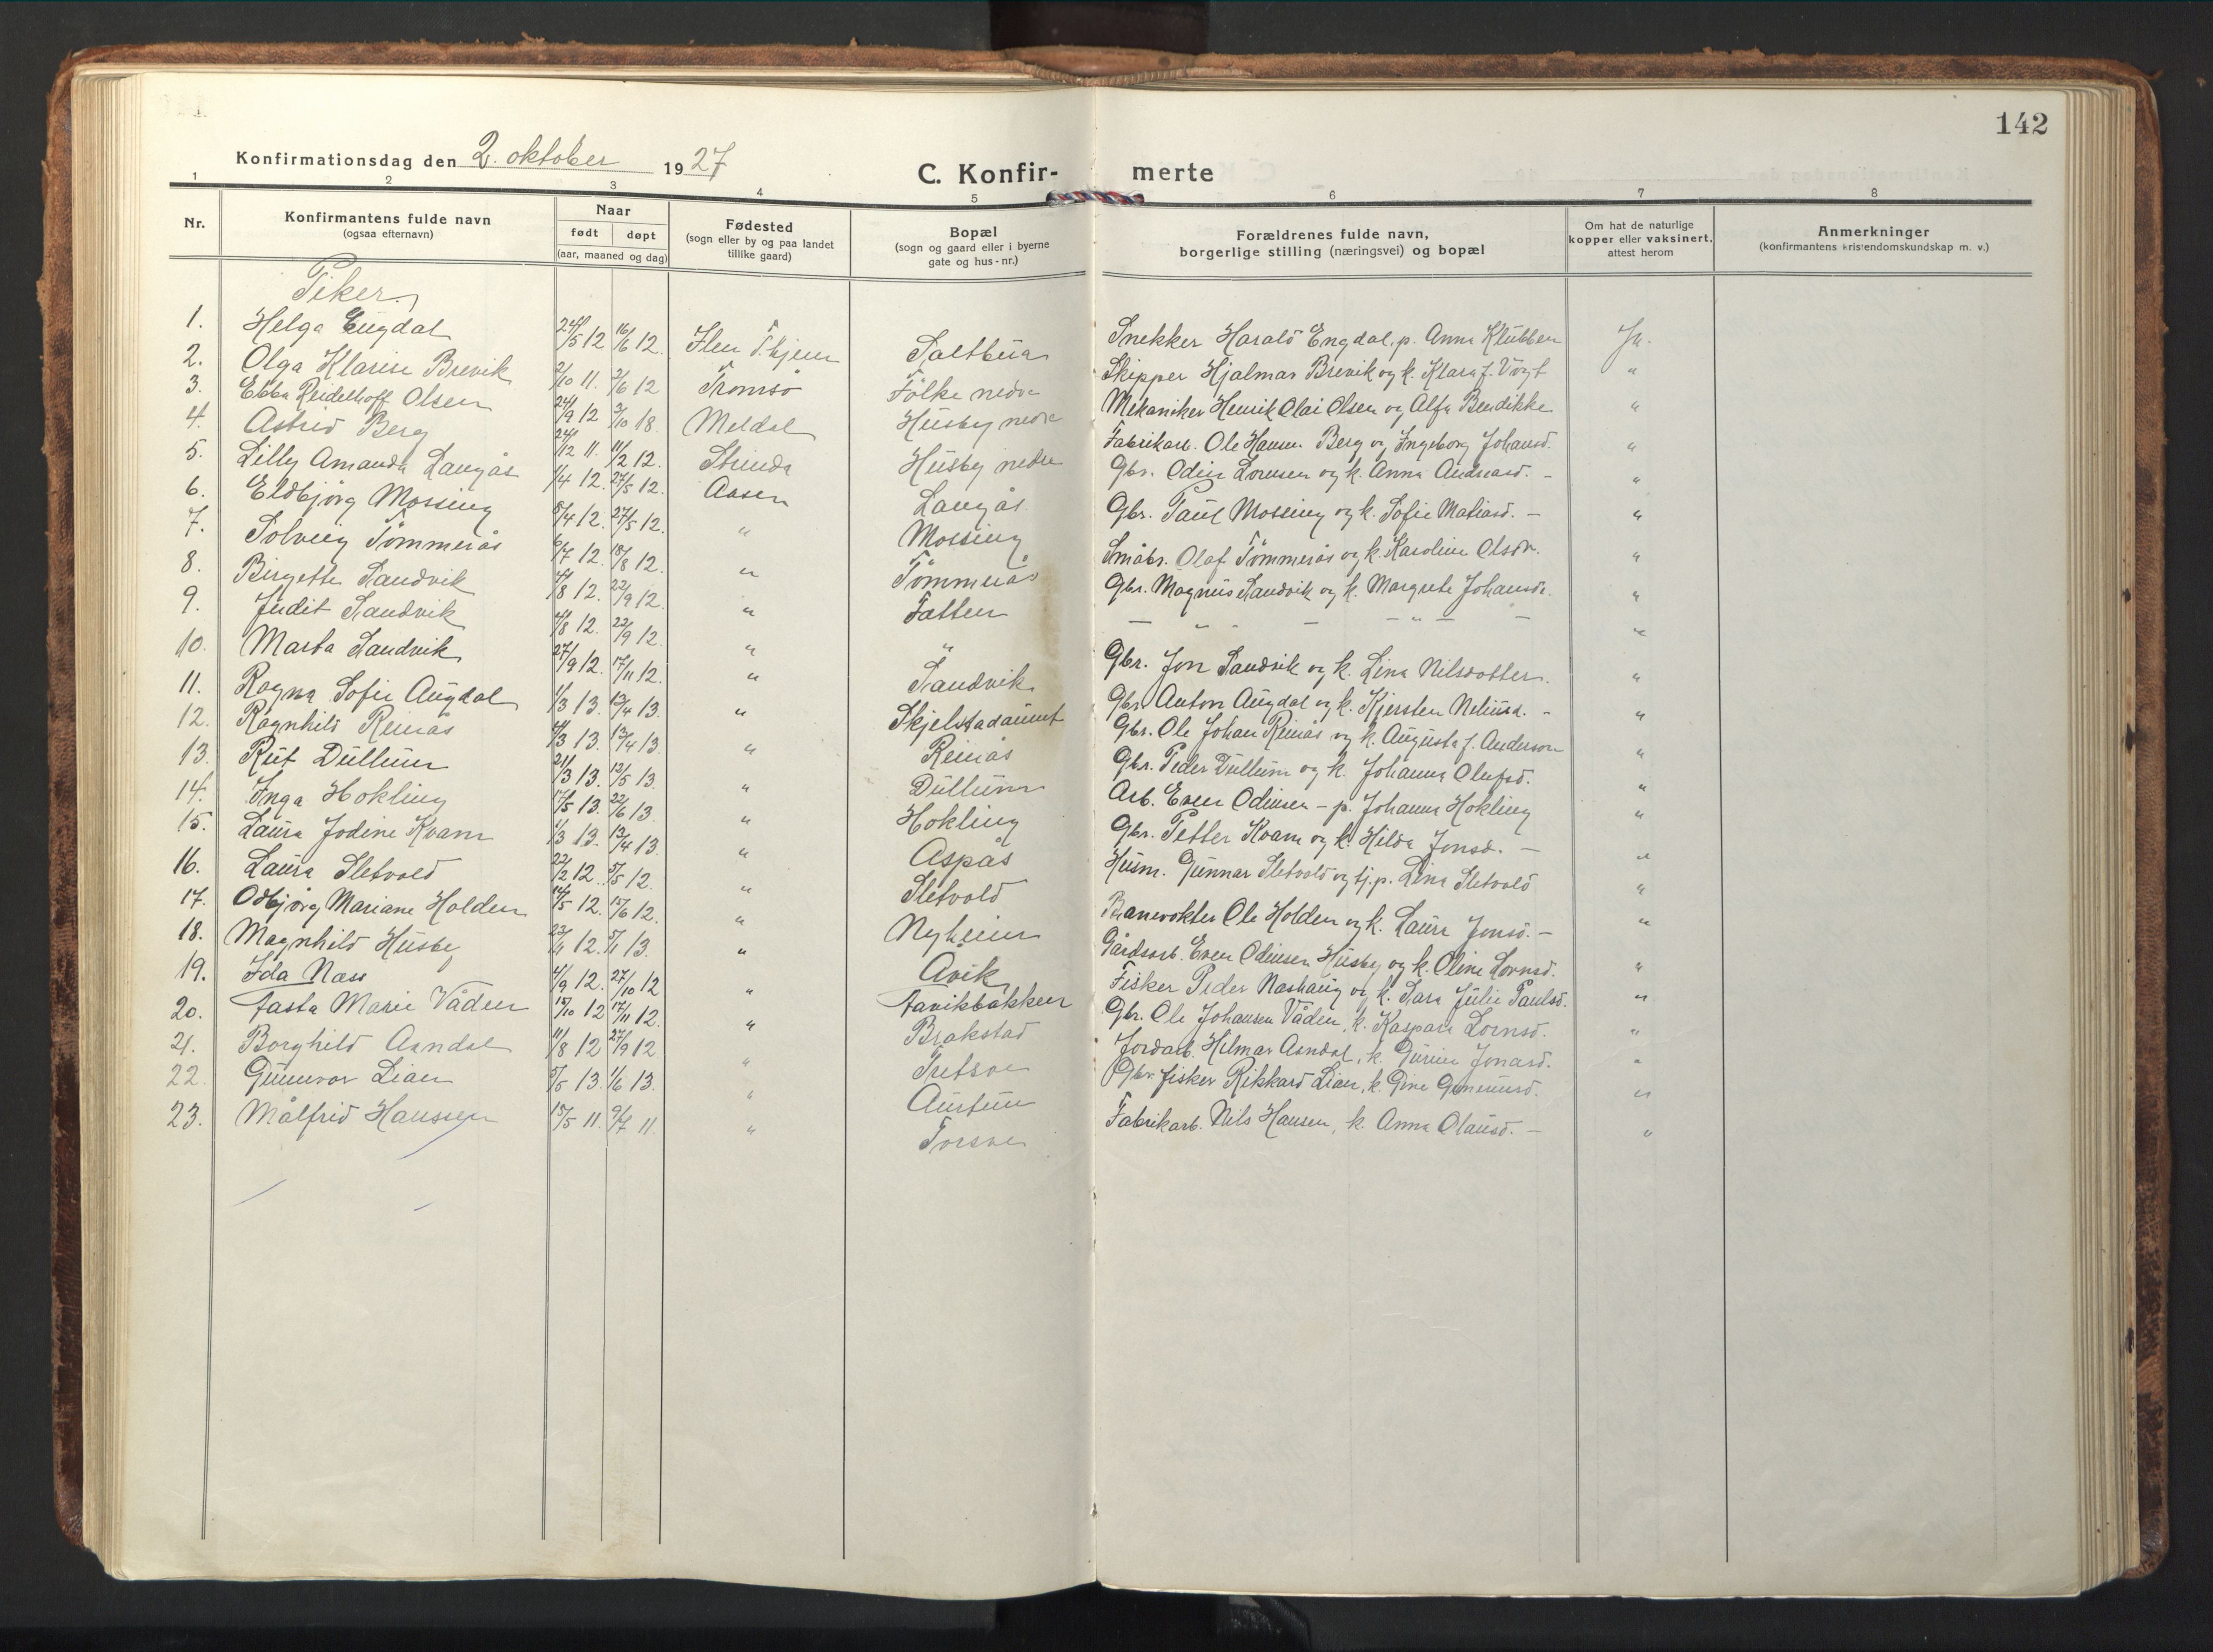 142
Konfirmationsdag den 2. oktober 1927
C. Konfir- merte
1 2 3 4 5 6 7 8
Nr. Konfirmantens fulde navn (ogsaa efternavn) Naar født døpt (aar, maaned og dag) Fødested (sogn eller by og paa landet tillike gaard) Bopæl (sogn og gaard eller i byerne gate og hus-nr.) Forældrenes fulde navn, borgerlige stilling (næringsvei) og bopæl Om hat de naturlige kopper eller vaksinert, attest herom Anmerkninger (konfirmantens kristendomskundskap m. v.)
Piker
1. Helga Engdal 24/5 12 16/6 12. Ilen T.hjem Saltbua Snekker Harald Engdal, p. Anna Klubben Ja.
2. Olga Klarise Brevik 2/10 11. 2/6 12 Tromsø Følke nedre Skipper Hjalmar Brevik og k. Klara f. Vogt "
3. Ebba Reidelhoff Olsen 24/9 12 3/10 18. Meldal Husby nedre Mekaniker Henrik Olai Olsen og Alfa Bendikke "
4. Astrid Berg 24/12 11. 11/2 12. Strinda Husby nedre Fabrikarb. Ole Hansen Berg og Ingeborg Johansd. "
5. Lilly Amanda Langås 1/4 12. 27/5 12. Aasen Langås Gbr. Odin Lorensen og k. Anna Andreasd. - "
6. Eldbjørg Mossing 5/4 12. 27/5 12. " Mossing Gbr. Paul Mossing og k. Sofie Matiasd. - "
7. Solveig Tømmerås 6/7 12. 18/8 12. " Tømmerås Småbr. Olaf Tømmerås og k. Karoline Olsdr. "
8. Birgette Sandvik 4/8 12. 22/9 12. " Fatten Gbr. Magnus Sandvik og k. Margrete Johansdr. "
9. Judit Sandvik 4/8 12. 22/9 12. " " - " - - " - - "
10. Marta Sandvik 27/9 12. 17/11 12. " Sandvik Gbr. Jon Sandvik og k. Lina Nilsdotter. "
11. Ragna Sofie Augdal 1/3 13. 13/4 13. " Skjelstadaunet Gbr. Anton Augdal og k. Kjersten Neliusd. - "
12. Ragnhild Reinås 4/3 13. 13/4 13. " Reinås Gbr. Ole Johan Reinås og k. Augusta f. Anderson "
13. Rut Dullum 21/3 13. 12/5 13. " Dullum Gbr. Peder Dullum og k. Johanna Olufsd. "
14. Inga Hokling 17/5 13. 22/6 13. " Hokling Arb. Even Odinsen - p. Johanna Hokling "
15. Laura Jodine Kvam 1/3 13. 13/4 13. " Aspås Gbr. Petter Kvam og k. Hilda Jonsd. - "
16. Laura Sletvold 22/2 12. 5/5 12. " Sletvold Husm. Gunnar Sletvold og tj.p. Lina Sletvold "
17. Odbjørg Mariane Holden 14/5 12. 15/6 12. " Nyheim Banevokter Ole Holden og k. Laura Jonsd. - "
18. Magnhild Husby 23/11 12. 5/1 13. " Avik Gårdsarb. Even Odinsen Husby og k. Oline Lornsd. "
19. Ida Næss 4/9 12. 27/10 12 " Aavikbakken Fisker Peder Nashaug og k. Sara Julie Paulsd. "
20. Aasta Marie Våden 15/10 12 17/11 12. " Brakstad Gbr. Ole Johansen Våden, k. Kaspara Lornsd. "
21. Borghild Aandal 11/8 12 27/9 12 " Tretsve Jordarb. Hilmar Aandal, k. Gurine Jonasd. "
22. Gunnvor Lian 5/5 13. 1/6 13. " Austun Gbr. fisker Rikkard Lian, k. Gine Gunneriusd. "
23. Målfrid Hanssen 15/5 11. 9/7 11. " Torsve Fabrikarb. Nils Hansen, k. Anna Olausd. - "